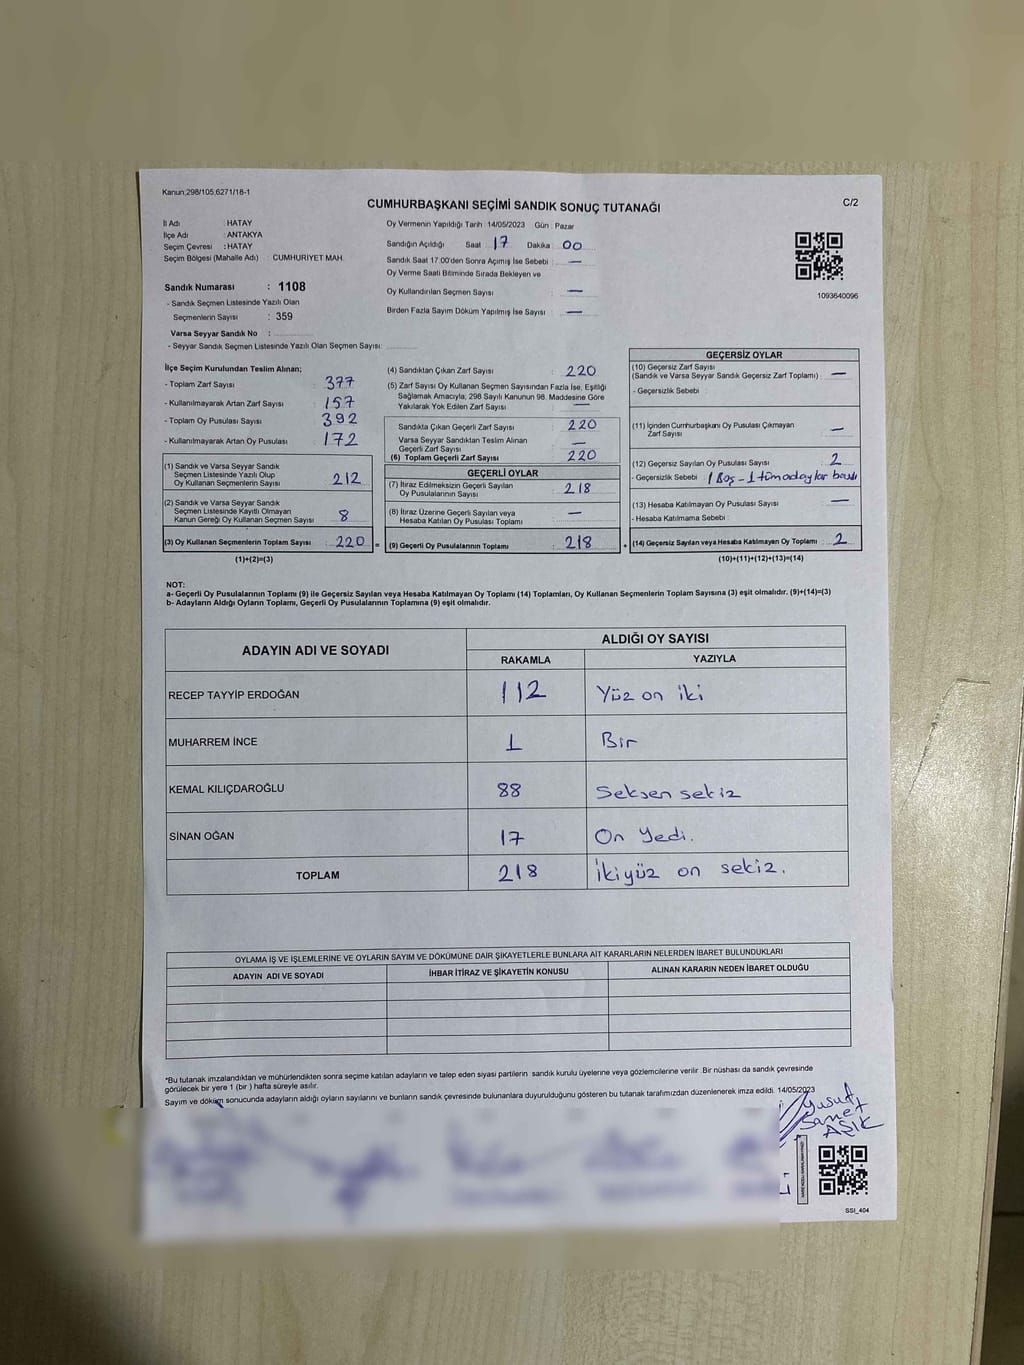 Kanun:298/105,6271/18-1
CUMHURBAŞKANI SEÇİMİ SANDIK SONUÇ TUTANAĞI
C/2
İl Adı : HATAY
İlçe Adı : ANTAKYA
Seçim Çevresi : HATAY
Seçim Bölgesi (Mahalle Adı) : CUMHURİYET MAH.
Sandık Numarası : 1108
- Sandık Seçmen Listesinde Yazılı Olan
Seçmenlerin Sayısı : 359
Varsa Seyyar Sandık No :
- Seyyar Sandık Seçmen Listesinde Yazılı Olan Seçmen Sayısı:
Oy Vermenin Yapıldığı Tarih : 14/05/2023 Gün : Pazar
Sandığın Açıldığı Saat 17 Dakika 00
Sandık Saat 17.00'den Sonra Açımış İse Sebebi : —
Oy Verme Saati Bitiminde Sırada Bekleyen ve
Oy Kullandırılan Seçmen Sayısı : —
Birden Fazla Sayım Döküm Yapılmış İse Sayısı : —
1093640096
İlçe Seçim Kurulundan Teslim Alınan;
- Toplam Zarf Sayısı : 377
- Kullanılmayarak Artan Zarf Sayısı : 157
- Toplam Oy Pusulası Sayısı : 392
- Kullanılmayarak Artan Oy Pusulası : 172
(1) Sandık ve Varsa Seyyar Sandık
Seçmen Listesinde Yazılı Olup
Oy Kullanan Seçmenlerin Sayısı : 212
(2) Sandık ve Varsa Seyyar Sandık
Seçmen Listesinde Kayıtlı Olmayan
Kanun Gereği Oy Kullanan Seçmen Sayısı : 8
(3) Oy Kullanan Seçmenlerin Toplam Sayısı : 220 =
(1)+(2)=(3)
(4) Sandıktan Çıkan Zarf Sayısı : 220
(5) Zarf Sayısı Oy Kullanan Seçmen Sayısından Fazla İse, Eşitliği
Sağlamak Amacıyla, 298 Sayılı Kanunun 98. Maddesine Göre
Yakılarak Yok Edilen Zarf Sayısı : —
Sandıkta Çıkan Geçerli Zarf Sayısı : 220
Varsa Seyyar Sandıktan Teslim Alınan
Geçerli Zarf Sayısı : —
(6) Toplam Geçerli Zarf Sayısı : 220
GEÇERLİ OYLAR
(7) İtiraz Edilmeksizin Geçerli Sayılan
Oy Pusulalarının Sayısı : 218
(8) İtiraz Üzerine Geçerli Sayılan veya
Hesaba Katılan Oy Pusulası Toplamı : —
(9) Geçerli Oy Pusulalarının Toplamı : 218 +
GEÇERSİZ OYLAR
(10) Geçersiz Zarf Sayısı
(Sandık ve Varsa Seyyar Sandık Geçersiz Zarf Toplamı) : —
- Geçersizlik Sebebi :
(11) İçinden Cumhurbaşkanı Oy Pusulası Çıkmayan
Zarf Sayısı : —
(12) Geçersiz Sayılan Oy Pusulası Sayısı : 2
- Geçersizlik Sebebi : 1 Boş - 1 tüm adaylar basılı
(13) Hesaba Katılmayan Oy Pusulası Sayısı : —
- Hesaba Katılmama Sebebi :
(14) Geçersiz Sayılan veya Hesaba Katılmayan Oy Toplamı : 2
(10)+(11)+(12)+(13)=(14)
NOT:
a- Geçerli Oy Pusulalarının Toplamı (9) ile Geçersiz Sayılan veya Hesaba Katılmayan Oy Toplamı (14) Toplamları, Oy Kullanan Seçmenlerin Toplam Sayısına (3) eşit olmalıdır. (9)+(14)=(3)
b- Adayların Aldığı Oyların Toplamı, Geçerli Oy Pusulalarının Toplamına (9) eşit olmalıdır.
ADAYIN ADI VE SOYADI ALDIĞI OY SAYISI
RAKAMLA YAZIYLA
RECEP TAYYİP ERDOĞAN 112 Yüz on iki
MUHARREM İNCE 1 Bir
KEMAL KILIÇDAROĞLU 88 Seksen sekiz
SİNAN OĞAN 17 On Yedi.
TOPLAM 218 İkiyüz on sekiz.
OYLAMA İŞ VE İŞLEMLERİNE VE OYLARIN SAYIM VE DÖKÜMÜNE DAİR ŞİKAYETLERLE BUNLARA AİT KARARLARIN NELERDEN İBARET BULUNDUKLARI
ADAYIN ADI VE SOYADI İHBAR İTİRAZ VE ŞİKAYETİN KONUSU ALINAN KARARIN NEDEN İBARET OLDUĞU
*Bu tutanak imzalandıktan ve mühürlendikten sonra seçime katılan adayların ve talep eden siyasi partilerin sandık kurulu üyelerine veya gözlemcilerine verilir .Bir nüshası da sandık çevresinde
görülecek bir yere 1 (bir ) hafta süreyle asılır.
Sayım ve döküm sonucunda adayların aldığı oyların sayılarını ve bunların sandık çevresinde bulunanlara duyurulduğunu gösteren bu tutanak tarafımızdan düzenlenerek imza edildi. 14/05/2023
Yusuf
Samet
AŞIK
SSI_404